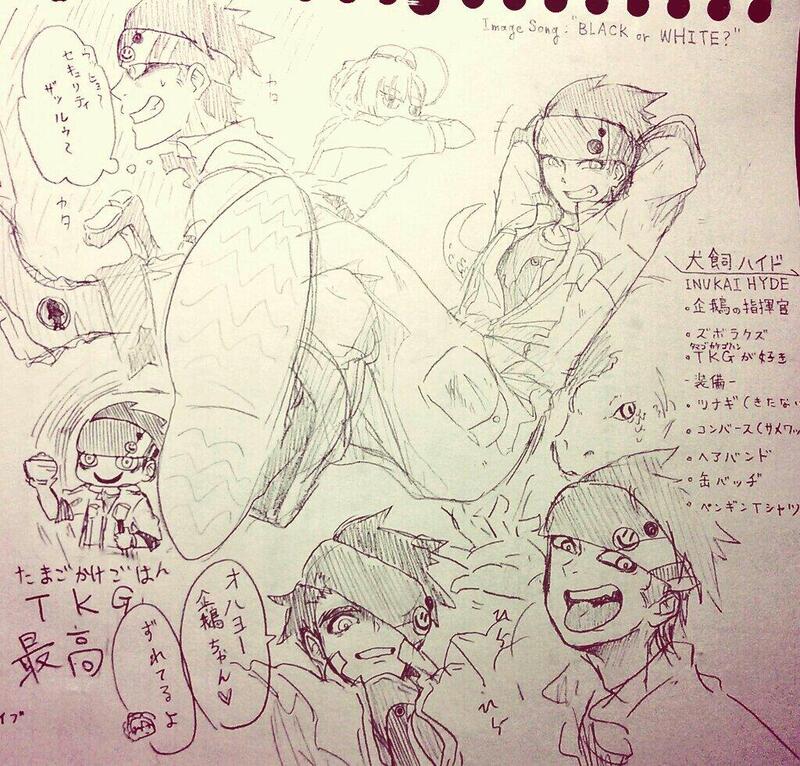 Image Song:"BLACK or WHITE?"
ウッヒョ〜
セキュリティ
ザッルゥ〜
カタ
カタ
犬飼ハイド
INUKAI HYDE
。企鵝の指揮官
。ズボラクズ
タマゴカケゴハン
。TKGが好き
-装備-
。ツナギ(きたない
。コンバース(サメワッ
。ヘアバンド
。缶バッヂ
。ペンギンTシャツ
たまごかけごはん
TKG
最高
オハヨー
企鵝ちゃん♡
ずれてるよ
イブ